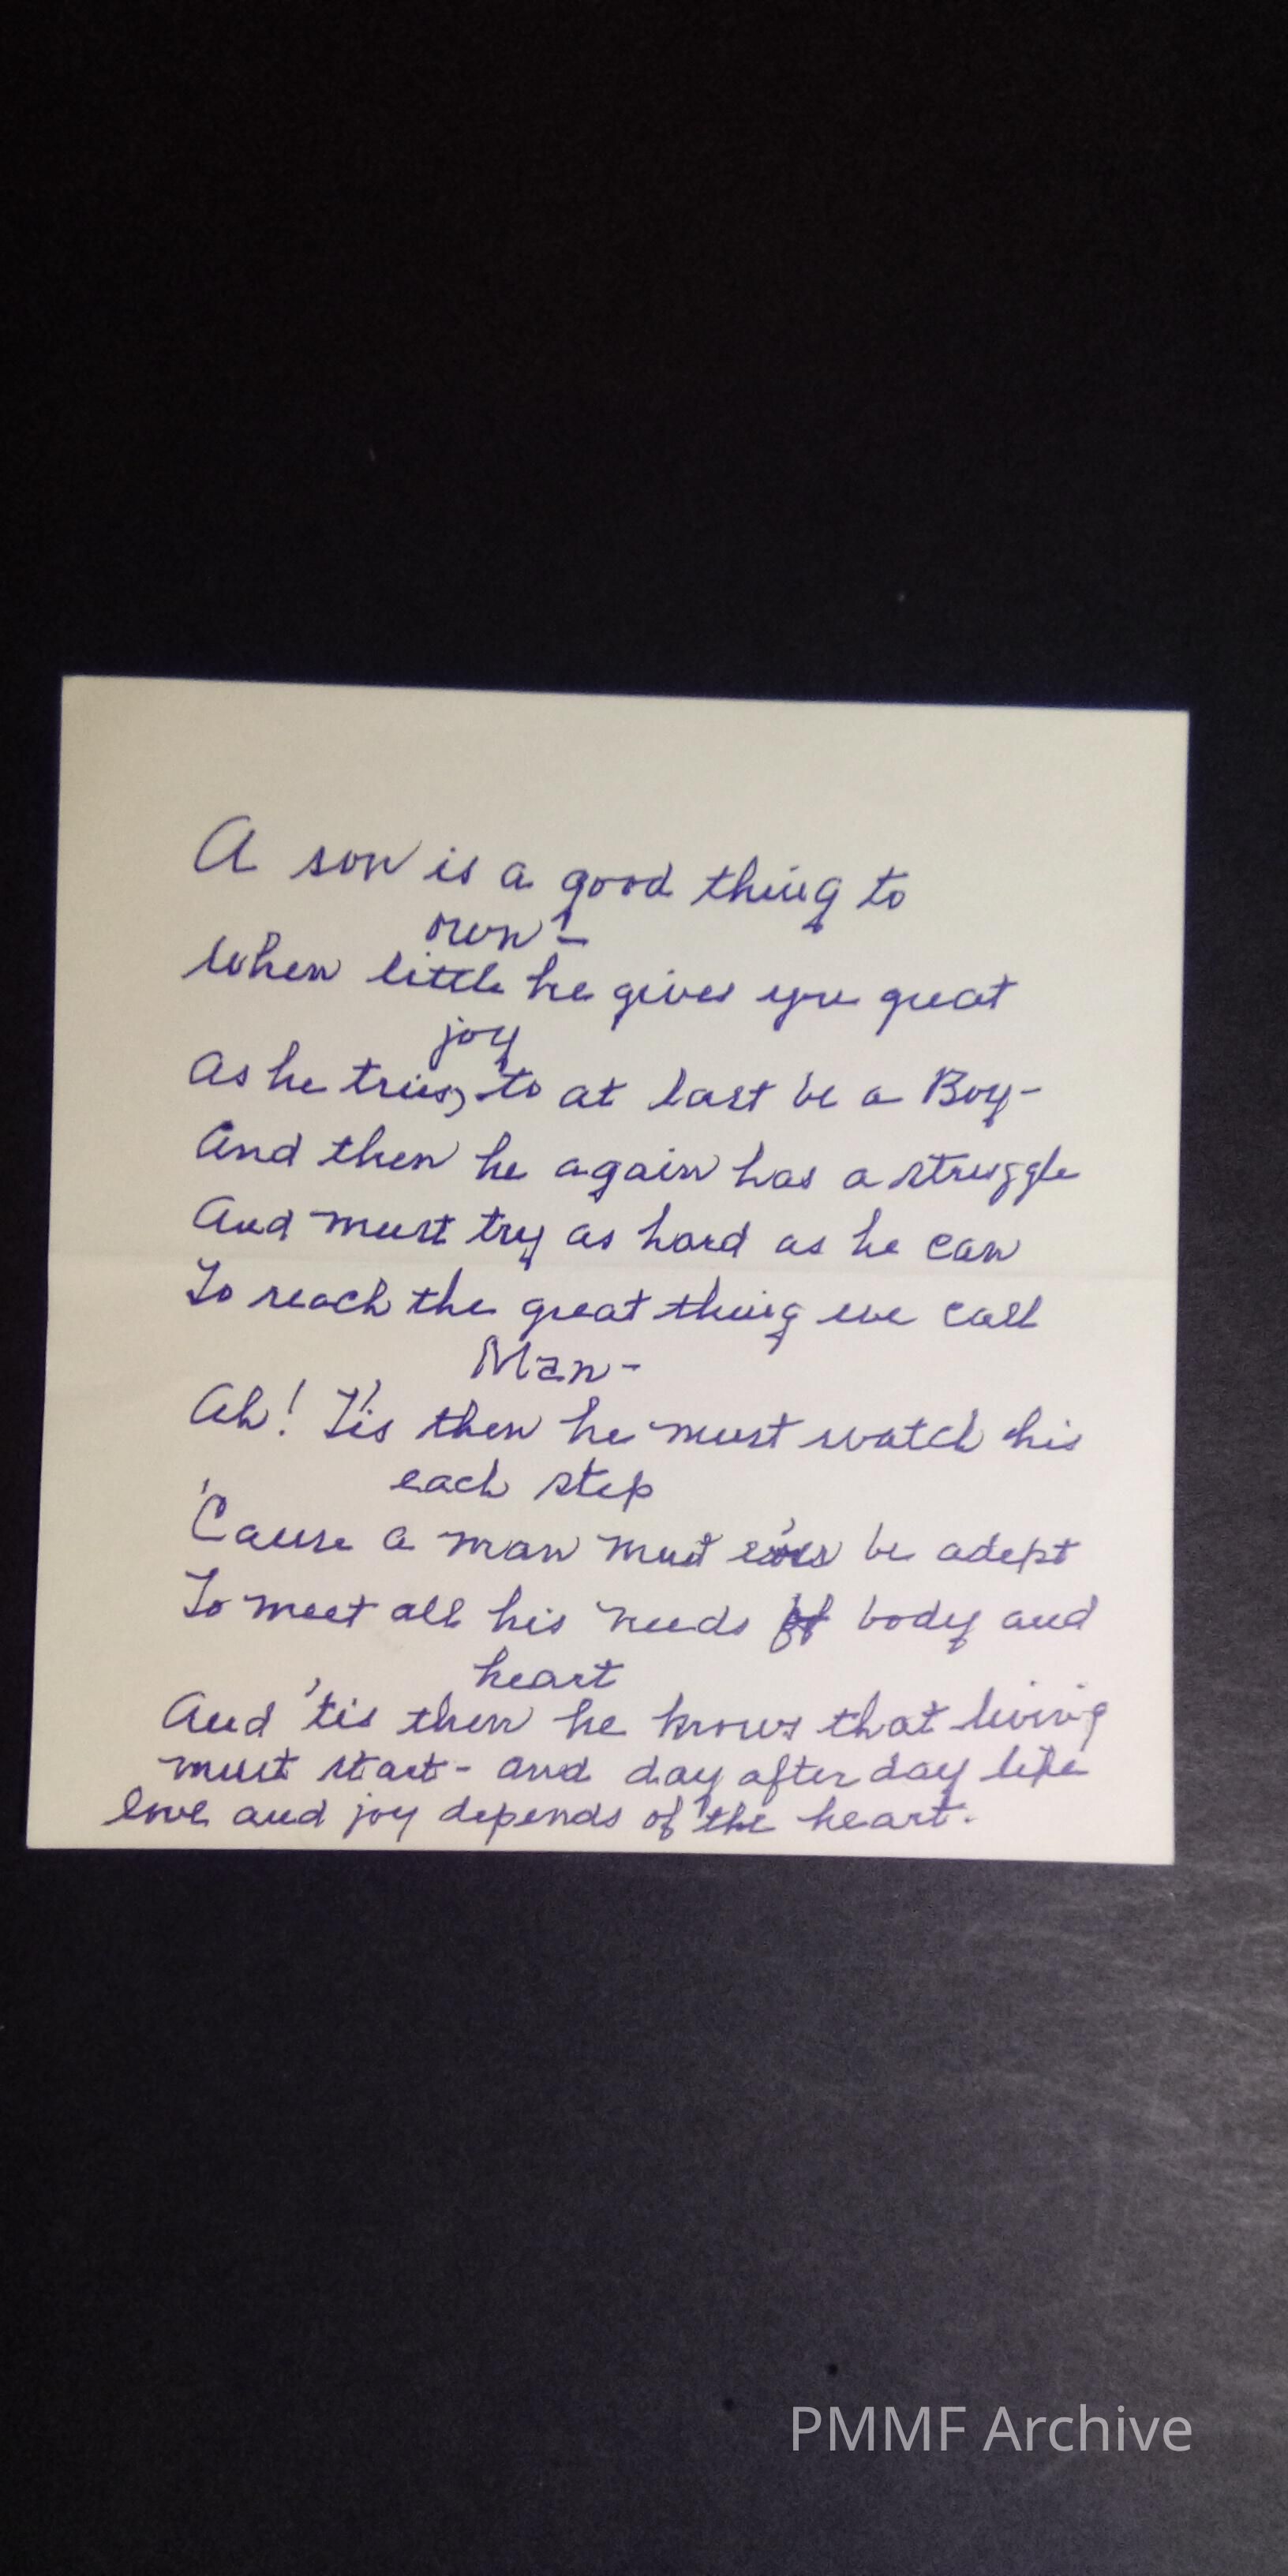 A son is a good thing to
own! -
When little he gives you great
joy
As he tries, to at last be a Boy -
And then he again has a struggle
And must try as hard as he can
To reach the great thing we call
Man -
Ah! 'Tis then he must watch his
each step
'Cause a man must be adept
To meet all his needs of body and
heart
And 'tis then he knows that living
must start - and day after day life
love and joy depends of the heart.
PMMF Archive